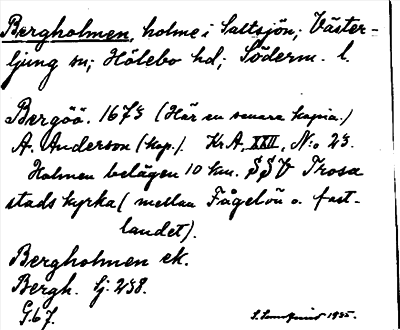 Bergholmen, holme i Saltsjön; Väster-
ljung sn; Hölebo hd; Söderm. l.
Bergöö. 1673 (Här en senare kopia.)
A. Anderson (kop.). Kr.A, XXII, N:o 23.
Holmen belägen 10 km. SSV Trosa
stads kyrka (mellan Fågelön o. fast-
landet).
Bergholmen ek.
Bergh. Gj. 238.
G.67.
1935.